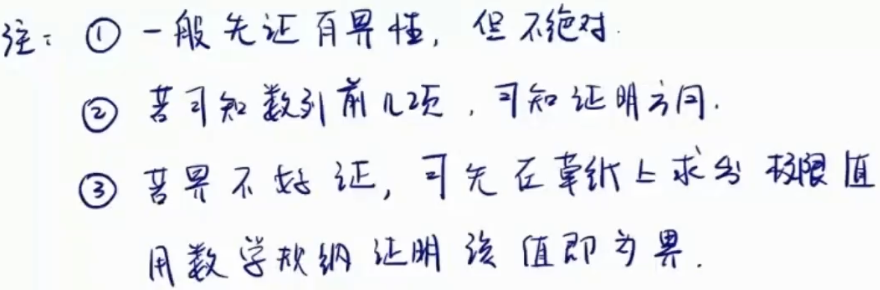 注：① 一般先证有界性，但不绝对.
② 若可知数列前几项，可知证明方向.
③ 若界不好证，可先在草纸上求出极限值
用数学归纳证明该值即为界.